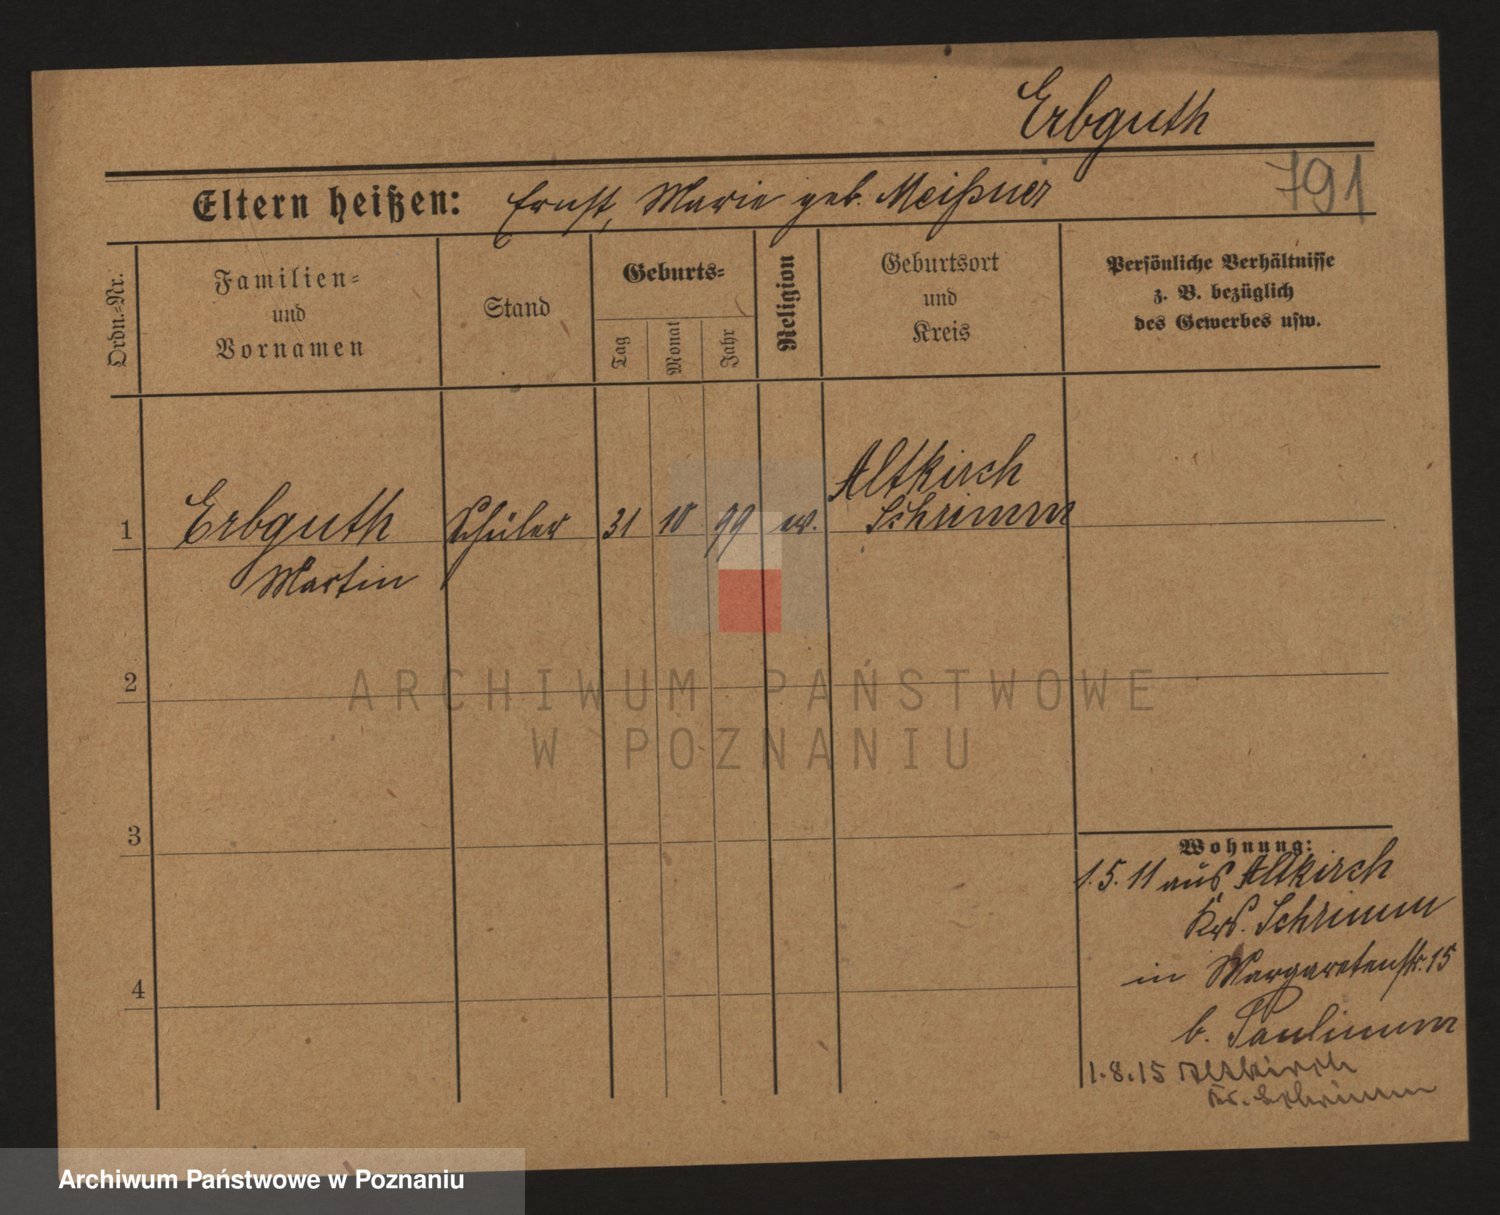 Erbguth
Eltern heißen: Ernst, Marie geb. Meißner
791
Ordn.=Nr.
Familien=
und
Vornamen
Stand
Geburts=
Tag
Monat
Jahr
Religion
Geburtsort
und
Kreis
Persönliche Verhältnisse
z. B. bezüglich
des Gewerbes usw.
1 Erbguth Schüler 31 10 99 ev. Altkirch
Schrimm
Martin
2
3
4
Wohnung:
1.5.11 aus Altkirch
Krs. Schrimm
in Margaretenstr. 15
b. Paulinum
1.8.15 Altkirch
Kr. Schrimm
ARCHIWUM PAŃSTWOWE
W POZNANIU
Archiwum Państwowe w Poznaniu